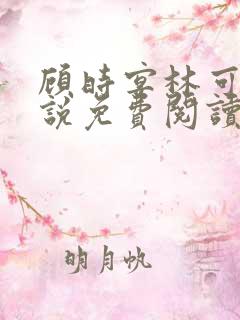 顾时宴林可
说免費閱讀
明月帆